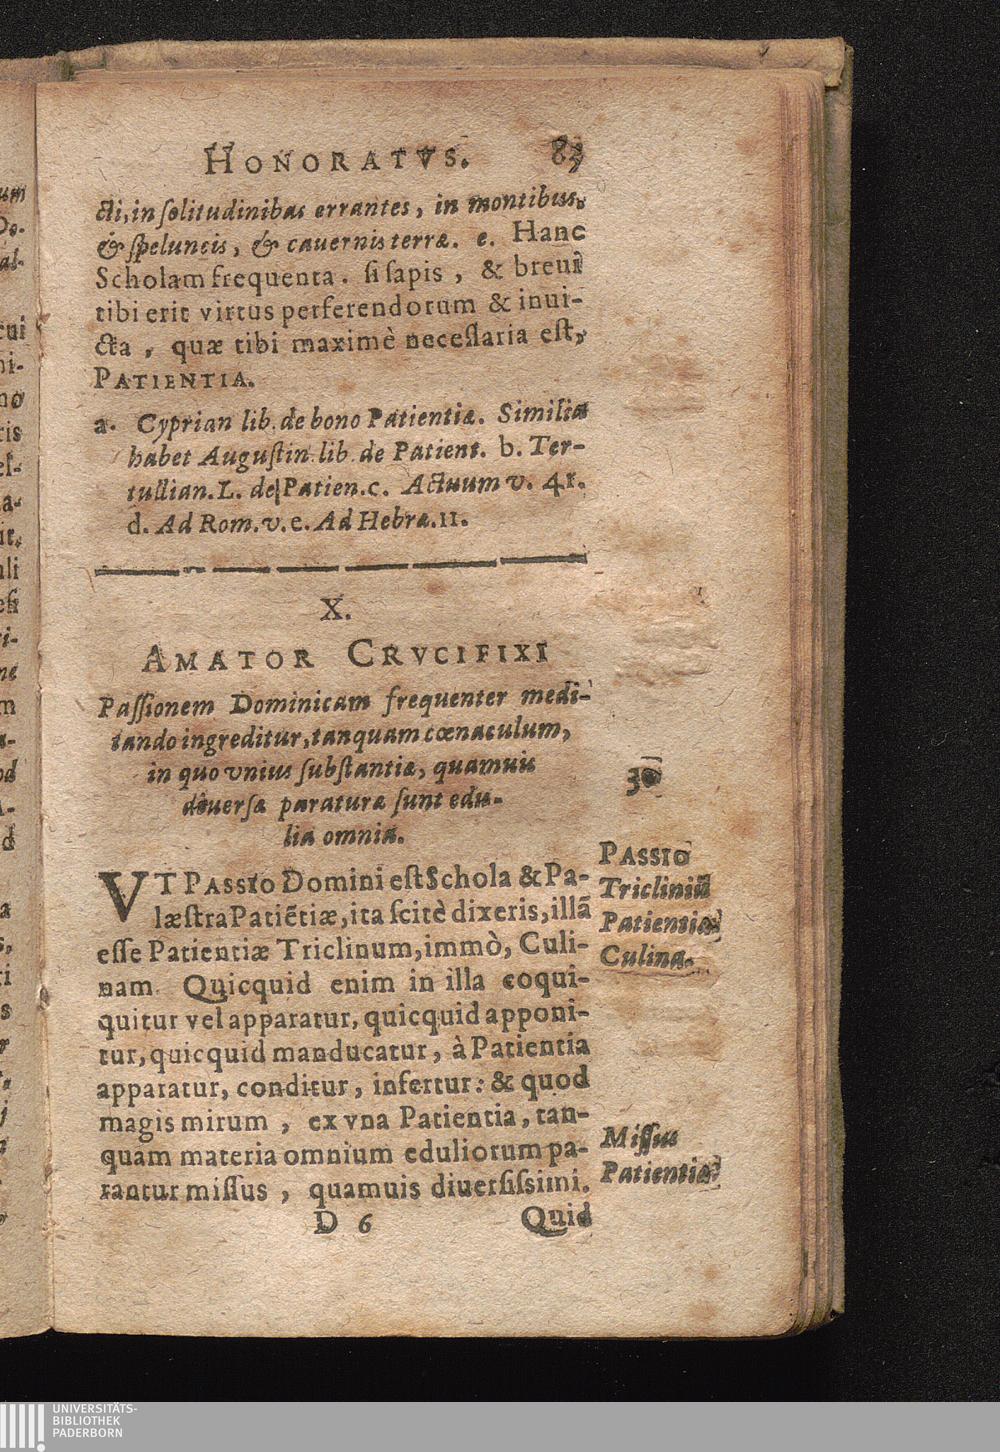 HONORATVS. 83
cti, in solitudinibus errantes, in montibus,
& speluncis, & cauernis terræ. e. Hanc
Scholam frequenta. si sapis, & breui
tibi erit virtus perferendorum & inui-
cta, quæ tibi maximè necessaria est,
PATIENTIA.
a. Cyprian lib. de bono Patientiæ. Similia
habet Augustin. lib. de Patient. b. Ter-
tullian. L. de Patien. c. Actuum v. 41.
d. Ad Rom. v. e. Ad Hebræ. 11.
X.
AMATOR CRVCIFIXI
Passionem Dominicam frequenter medi-
tando ingreditur, tanquam cœnaculum,
in quo vnius substantiæ, quamuis
diuersæ paraturæ sunt edu-
lia omnia.
VT PASSIO Domini est Schola & Pa-
læstra Patiẽtiæ, ita scitè dixeris, illã
esse Patientiæ Triclinum, immò, Culi-
nam. Quicquid enim in illa coqui-
quitur vel apparatur, quicquid apponi-
tur, quicquid manducatur, à Patientia
apparatur, conditur, infertur: & quod
magis mirum, ex vna Patientia, tan-
quam materia omnium eduliorum pa-
rantur missus, quamuis diuersissimi.
D 6 Quid
PASSIO
Tricliniũ
Patientiæ
Culina.
Missus
Patientiæ
UNIVERSITÄTS-
BIBLIOTHEK
PADERBORN